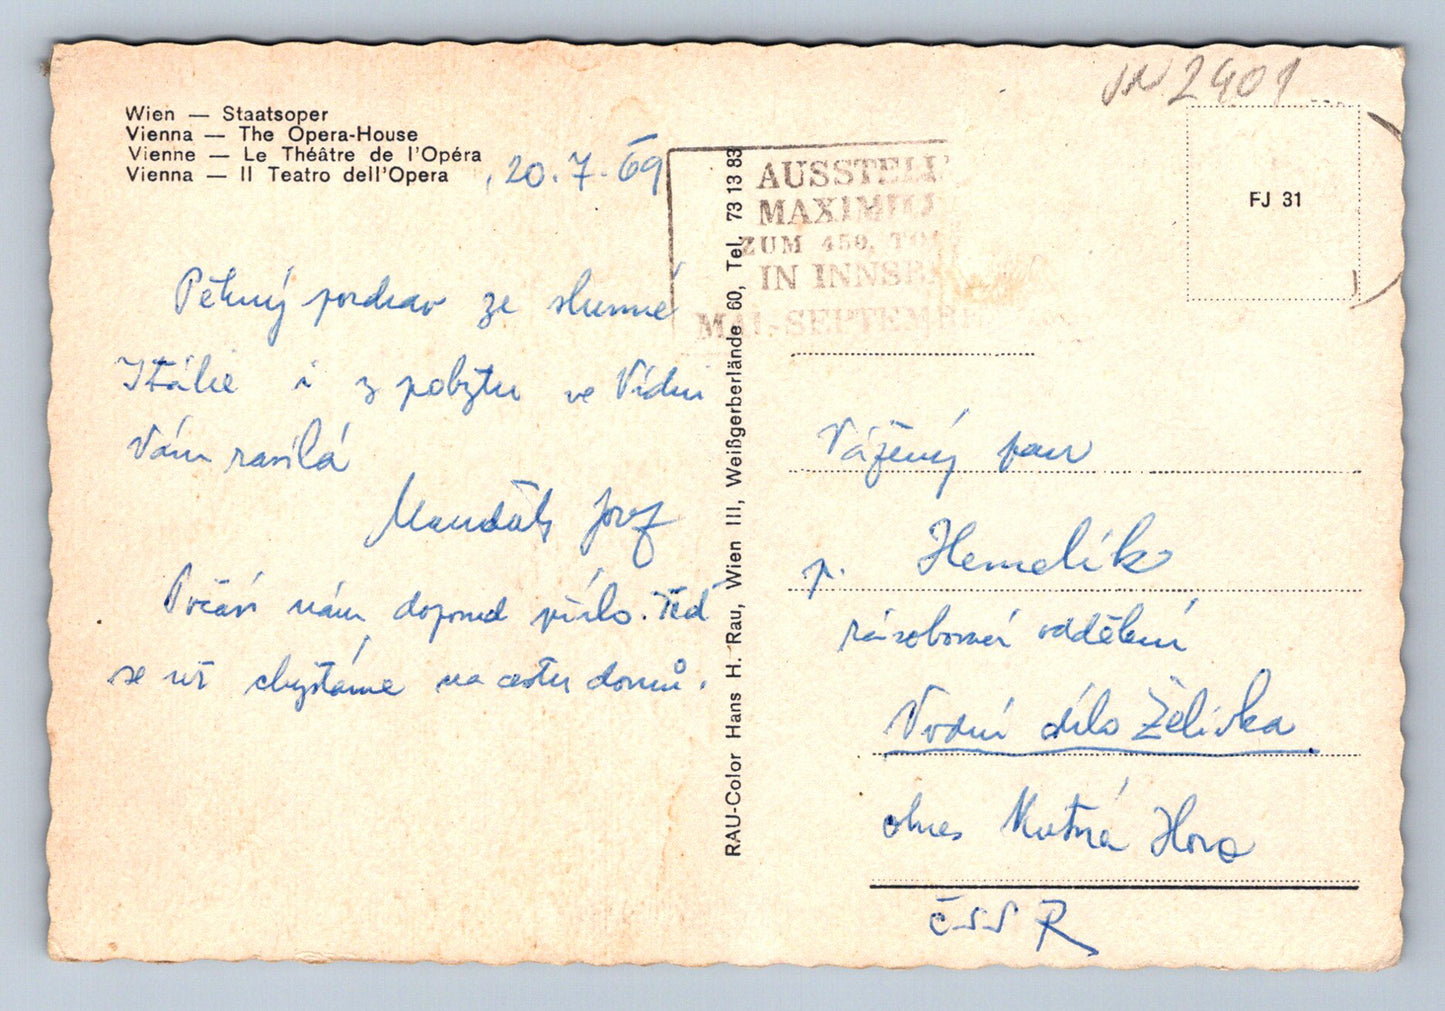 JN 2401
Wien — Staatsoper
Vienna — The Opera-House
Vienne — Le Théâtre de l'Opéra
Vienna — Il Teatro dell'Opera
20.7.69
AUSSTELL
MAXIMIL
ZUM 450. TO
IN INNSB
MAI-SEPTEMBE
FJ 31
Pěkný pozdrav ze slunné
Itálie i z pobytu ve Vídni
Vám zasílá
Mandát Josef
Počasí nám doposud přálo. Teď
se už chystáme na cestu domů.
RAU-Color Hans H. Rau, Wien III, Weißgerberlände 60, Tel. 73 13 83
Vážený pan
p. Hemelík
zásobovací oddělení
Vodní dílo Želivka
okres Kutná Hora
ČSSR